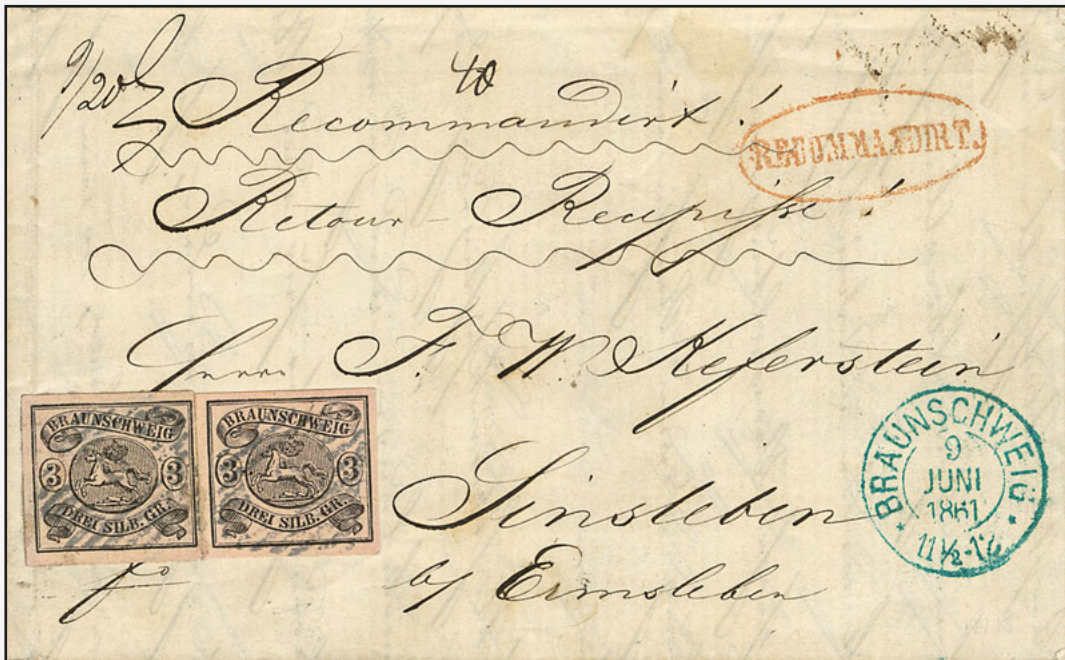 9/20
40
Recommandirt!
RECOMMANDIRT.
Retour-Recepisse!
Herrn F. W. Keferstein
BRAUNSCHWEIG
3 3
DREI SILB. GR.
BRAUNSCHWEIG
3 3
DREI SILB. GR.
Sinsleben
BRAUNSCHWEIG
9
JUNI
1861
11½-12
fo
b/ Ermsleben